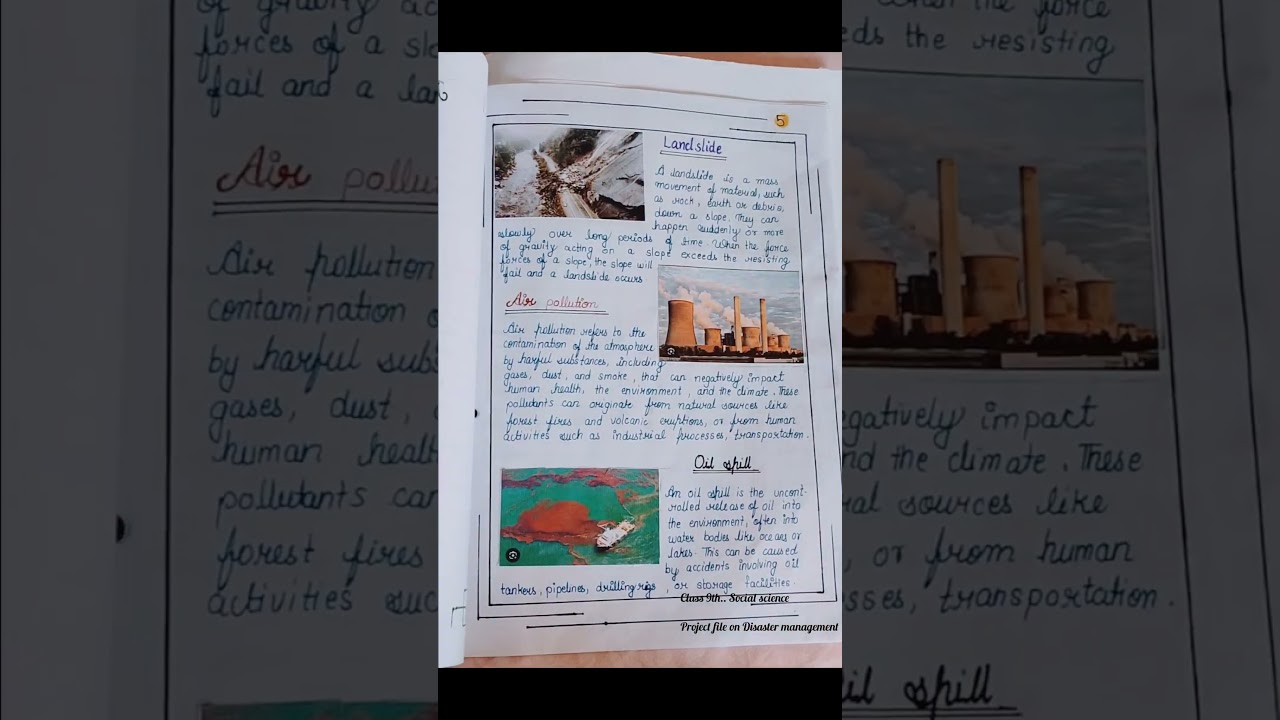 5
Landslide
A landslide is a mass
movement of material, such
as rock, earth or debris,
down a slope. They can
happen suddenly or more
slowly over long periods of time. When the force
of gravity acting on a slope exceeds the resisting
forces of a slope, the slope will
fail and a landslide occurs
Air pollution
Air pollution refers to the
contamination of the atmosphere
by harful substances, including
gases, dust, and smoke, that can negatively impact
human health, the environment, and the climate. These
pollutants can originate from natural sources like
forest fires and volcanic eruptions, or from human
activities such as industrial processes, transportation.
Oil spill
An oil spill is the uncont-
rolled release of oil into
the environment, often into
water bodies like oceaes or
lakes. This can be caused
by accidents involving oil
tankers, pipelines, drilling rigs, or storage facilities.
Class 9th.. Social science
Project file on Disaster management